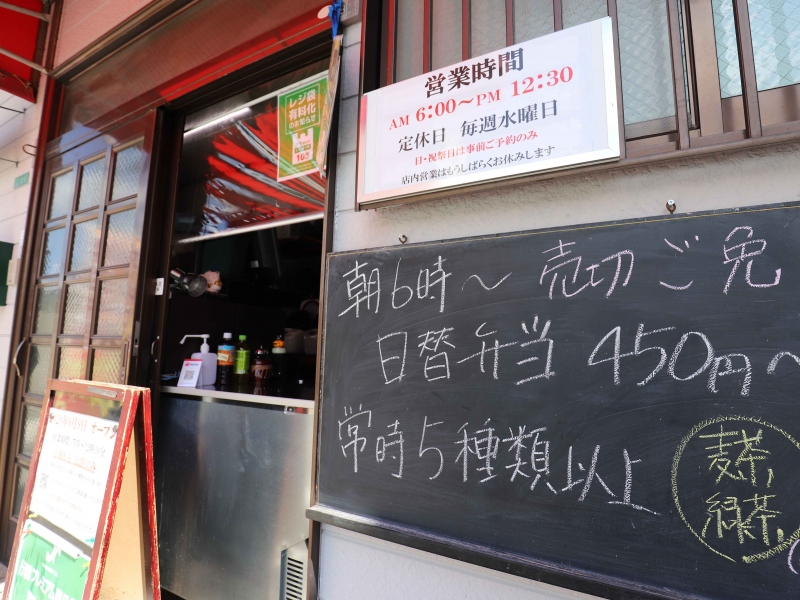 営業時間
AM 6:00～PM 12:30
定休日 毎週水曜日
日・祝祭日は事前ご予約のみ
店内営業はもうしばらくお休みします
レジ袋
有料化
のお知らせ
朝6時～売切ご免
日替弁当 450円～
常時5種類以上
麦茶
緑茶